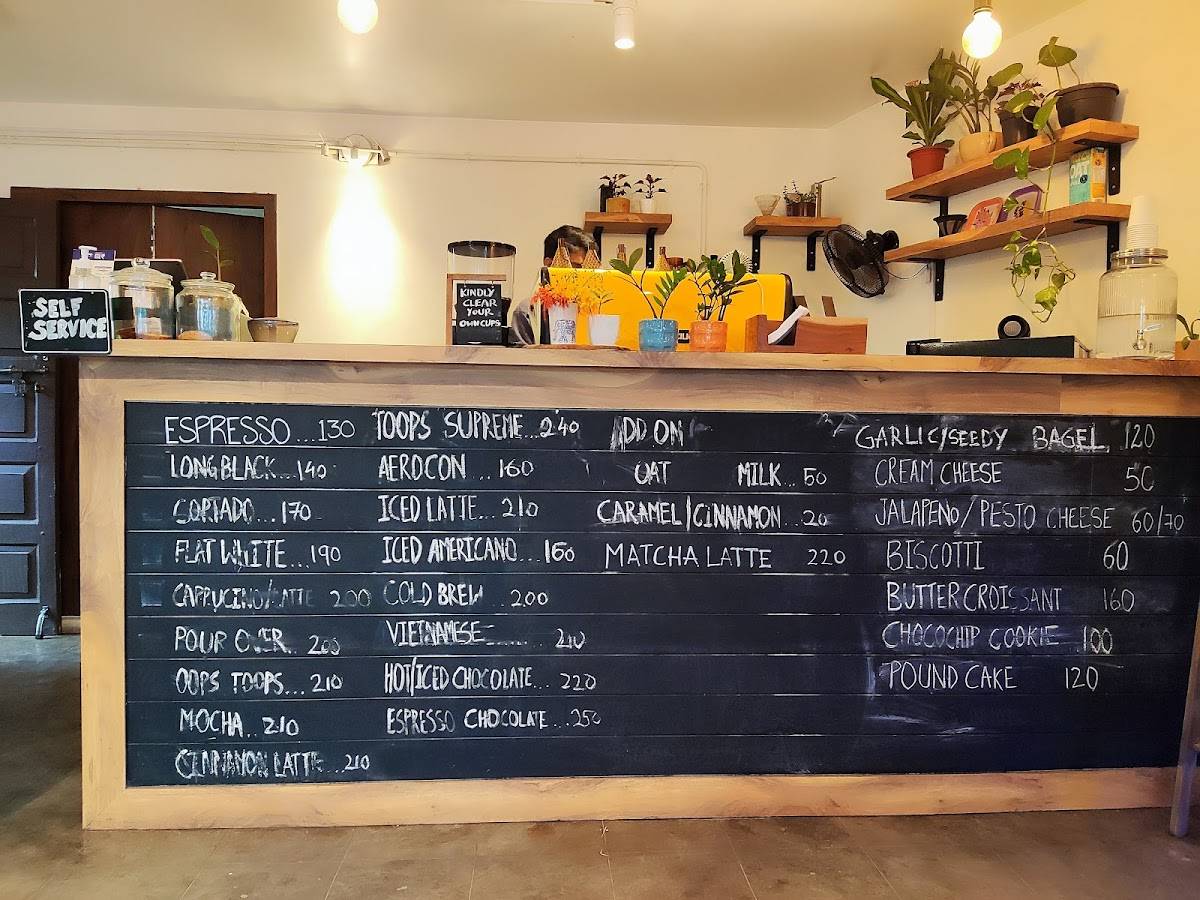 SELF
SERVICE
KINDLY
CLEAR
YOUR
OWN CUPS
ESPRESSO...130
LONG BLACK...140
CORTADO...170
FLAT WHITE...190
CAPPUCINO/LATTE 200
POUR OVER..200
OOPS TOOPS...210
MOCHA..210
CINNAMON LATTE...210
TOOPS SUPREME...240
AEROCON ...160
ICED LATTE...210
ICED AMERICANO...160
COLD BREW ...200
VIETNAMESE...... 210
HOT/ICED CHOCOLATE... 220
ESPRESSO CHOCOLATE...250
ADD ON
OAT MILK...50
CARAMEL/CINNAMON...20
MATCHA LATTE 220
GARLIC/SEEDY BAGEL 120
CREAM CHEESE 50
JALAPENO/PESTO CHEESE 60/70
BISCOTTI 60
BUTTER CROISSANT 160
CHOCOCHIP COOKIE 100
POUND CAKE 120